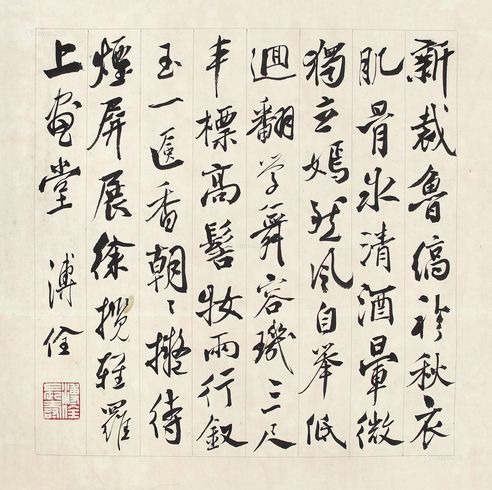 新裁魯縞秋衣
肌骨冰清酒暈微
獨立嫣然風自舉低
迴翻學舞容璣三尺
丰標高髻妝兩行釵
玉一匳香朝〻擬待
煙屏展徐攬輕羅
上畫堂
溥佺
溥佺